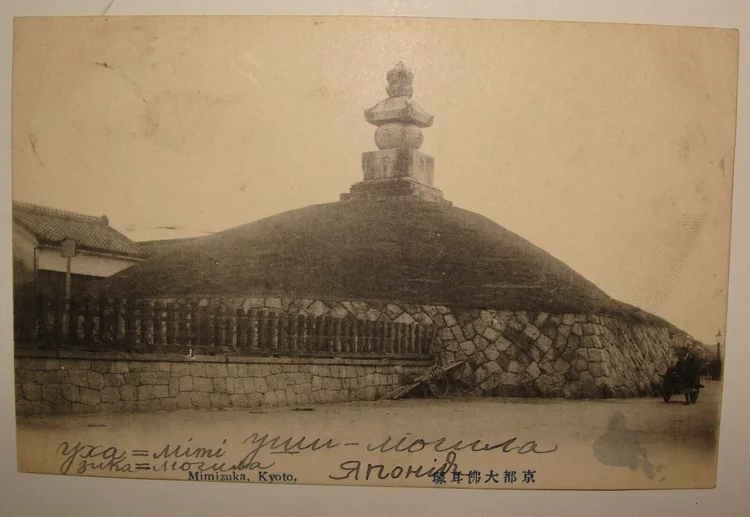 уха = mimi уши - могила
зика = могила
Японія
Mimizuka, Kyoto.
京都大佛耳塚